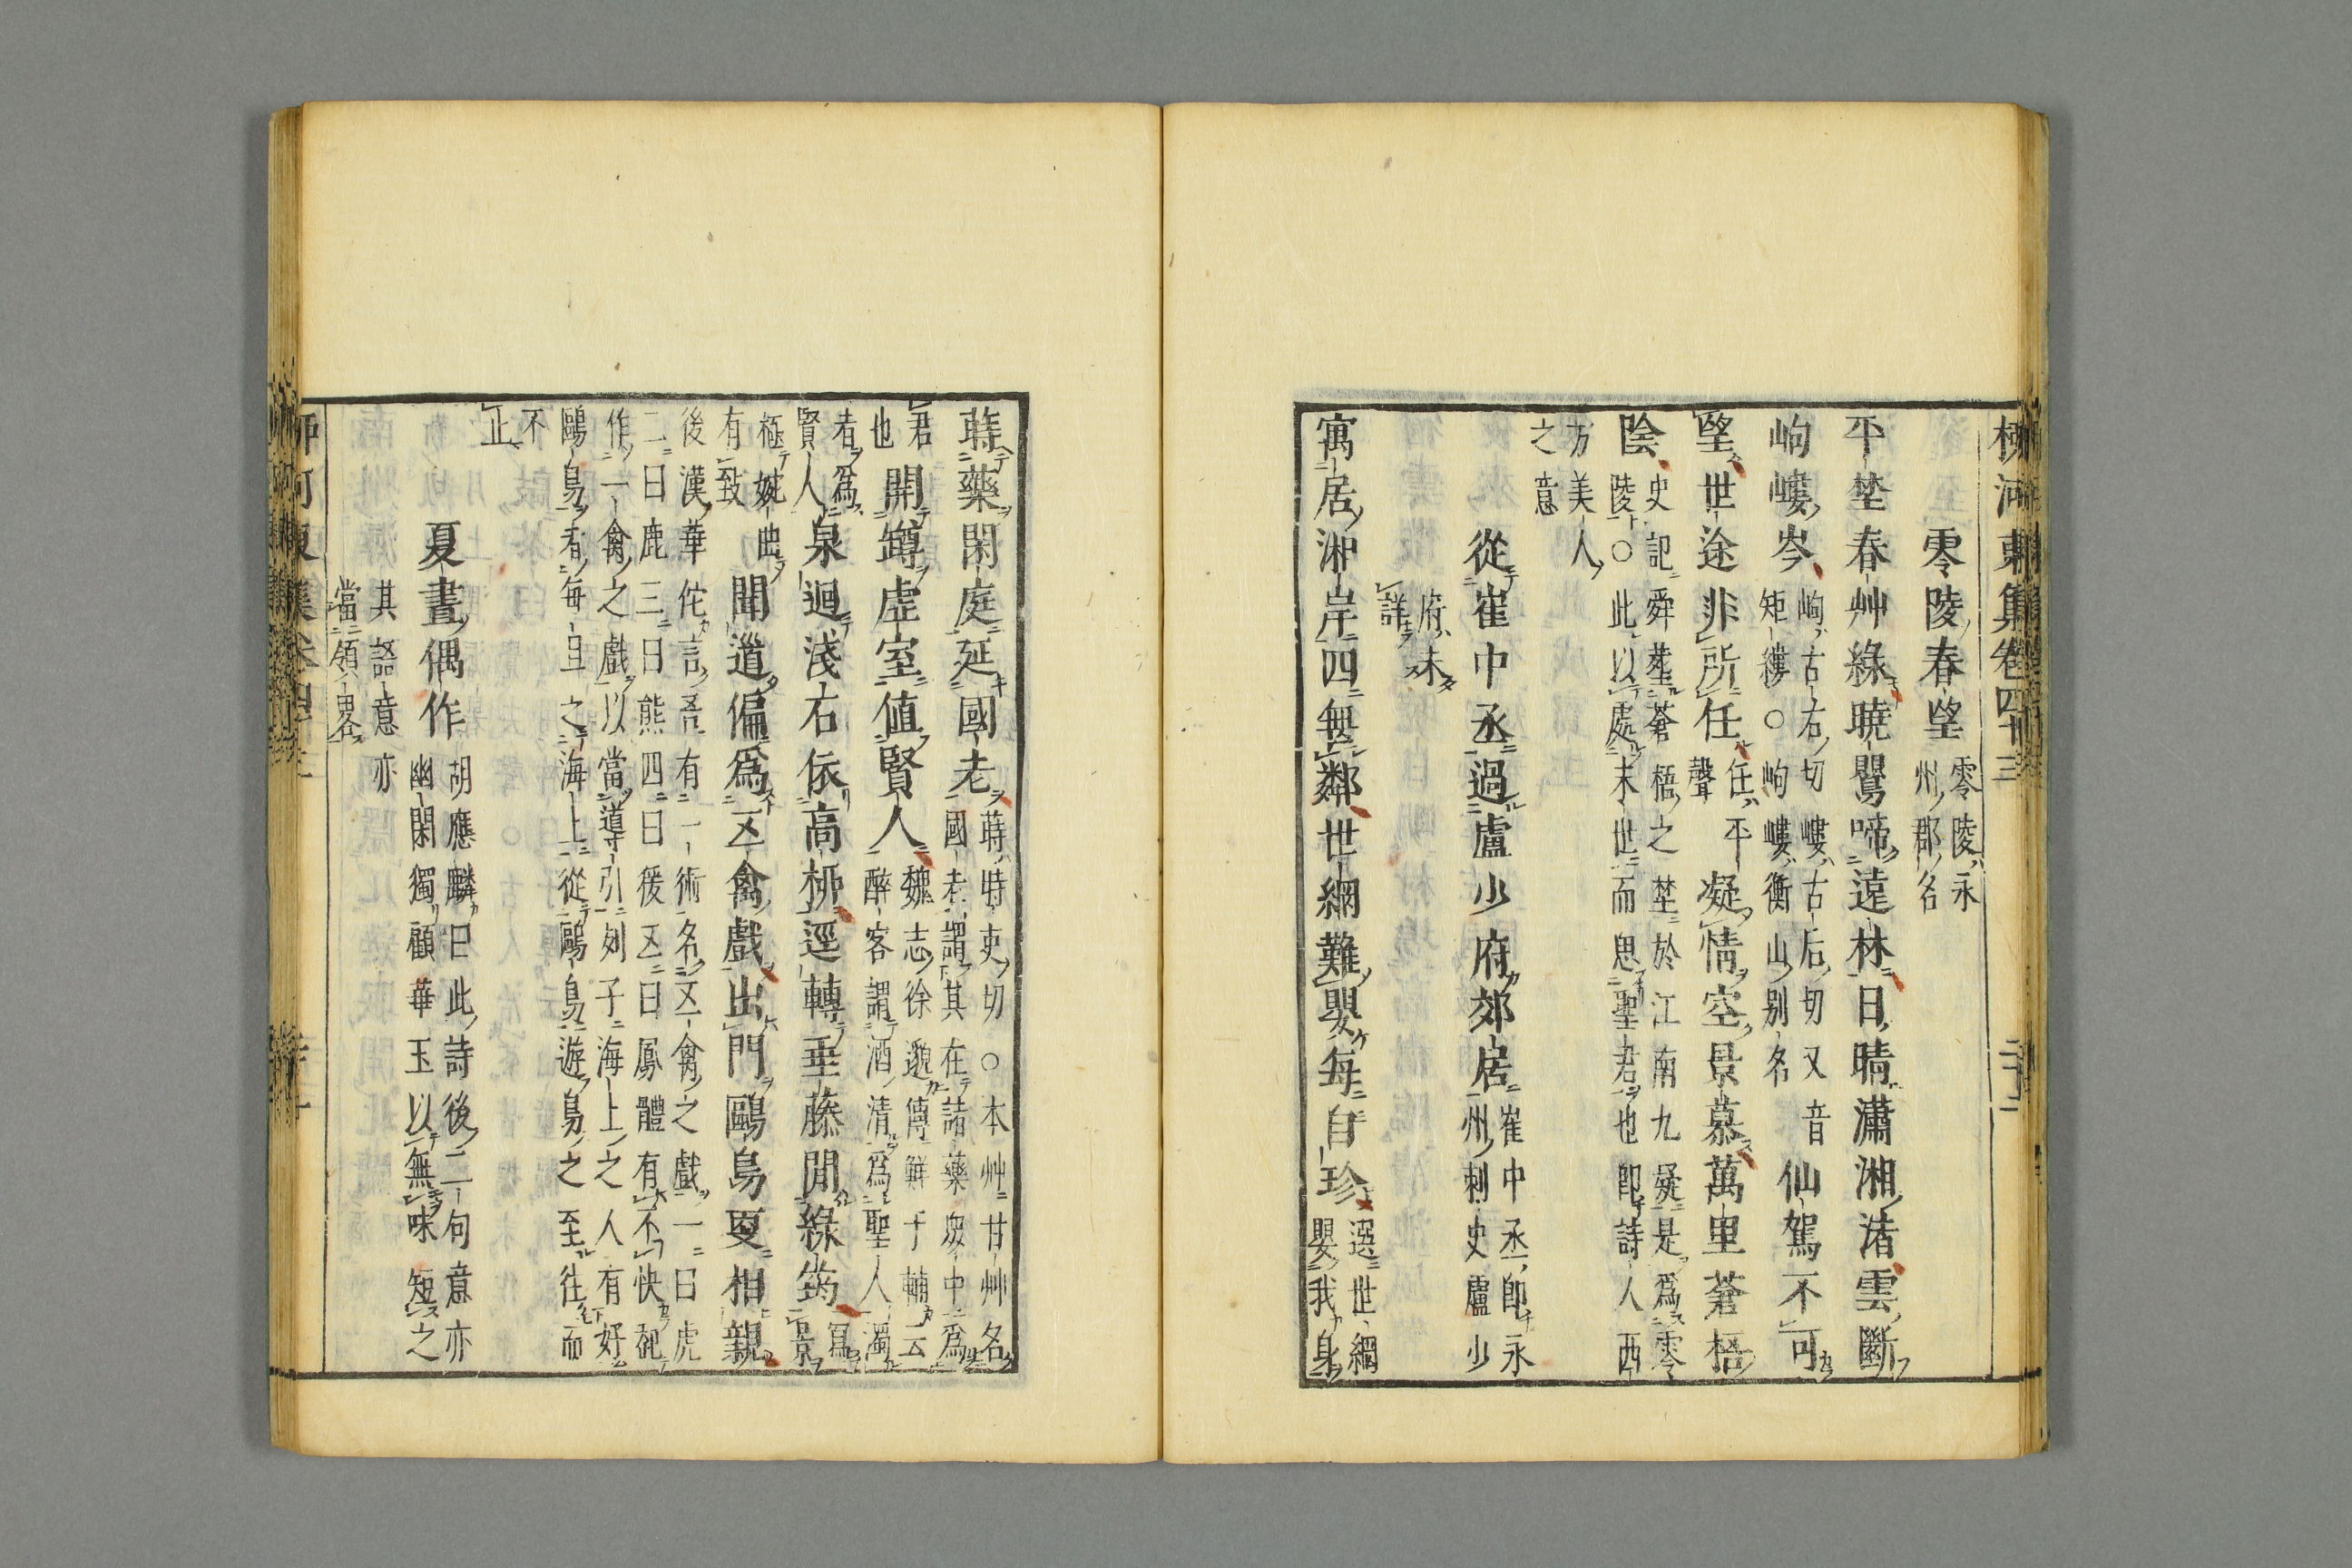 柳河東集卷四十三
零陵春望 零陵永
州郡名
平埜春艸綠曉鸎啼遠林日晴瀟湘渚雲斷
岣嶁岑 岣古右切嶁古后切又音
矩縷○岣嶁衡山別名 仙駕不可
望世途非所任 任平
聲 凝情空景慕萬里蒼梧
陰 史記舜葬蒼梧之埜於江南九疑是爲零
陵○此以處末世而思聖君也卽詩人西
方美人
之意
從崔中丞過盧少府郊居 崔中丞卽永
州刺史盧少
府未
詳
寓居湘岸四無鄰世網難嬰每自珍 選世網
嬰我身
蒔藥閑庭延國老 蒔時吏切○本艸甘艸名
國老謂其在諸藥衆中爲
君
也 開罇虛室值賢人 魏志徐邈傳鮮于輔云
醉客謂酒清爲聖人濁
者爲
賢人 泉迴淺石依高柳逕轉垂藤閒綠筠 寫景
極婉曲
有致 聞道偏爲五禽戲出門鷗鳥更相親
後漢華佗言吾有一術名五禽之戲一曰虎
二曰鹿三曰熊四曰猨五曰鳳體有不快起
作一禽之戲以當導引列子海上之人有好
鷗鳥者每旦之海上從鷗鳥遊鳥之至往而
不
止
夏晝偶作 胡應麟曰此詩後二句意亦
幽閑獨顧華玉以無味短之
其語意亦
當領畧
柳河東集卷四十三